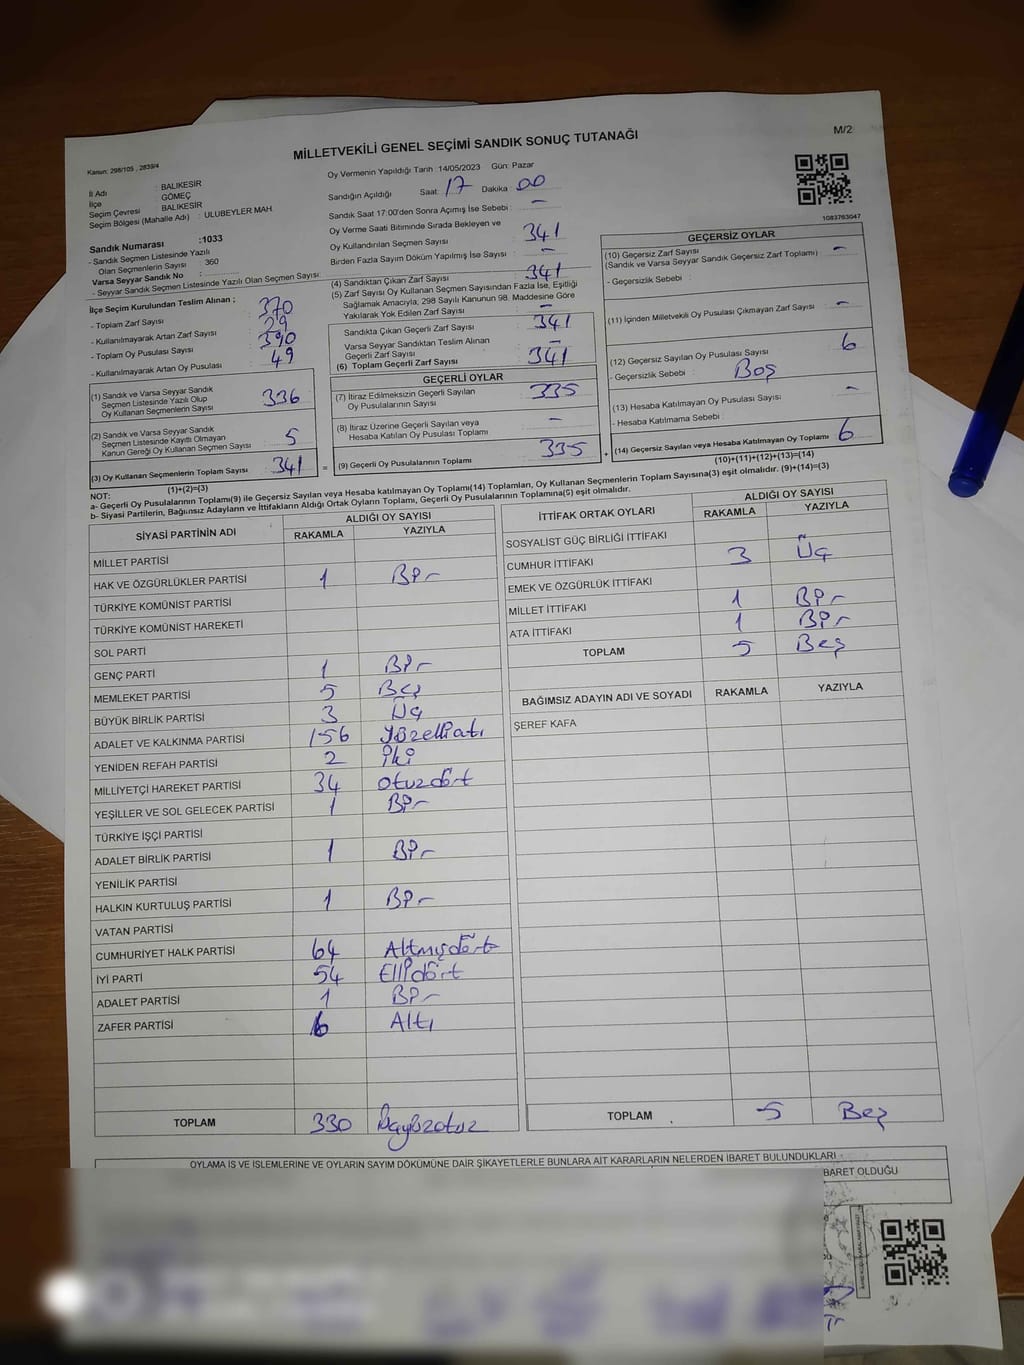 MİLLETVEKİLİ GENEL SEÇİMİ SANDIK SONUÇ TUTANAĞI
M/2
Kanun: 298/105 , 2839/4
İl Adı : BALIKESİR
İlçe : GÖMEÇ
Seçim Çevresi : BALIKESİR
Seçim Bölgesi (Mahalle Adı) : ULUBEYLER MAH
Sandık Numarası :1033
- Sandık Seçmen Listesinde Yazılı
Olan Seçmenlerin Sayısı 360
Varsa Seyyar Sandık No :
- Seyyar Sandık Seçmen Listesinde Yazılı Olan Seçmen Sayısı:
İlçe Seçim Kurulundan Teslim Alınan ;
- Toplam Zarf Sayısı 370
- Kullanılmayarak Artan Zarf Sayısı 29
- Toplam Oy Pusulası Sayısı 390
- Kullanılmayarak Artan Oy Pusulası 49
(1) Sandık ve Varsa Seyyar Sandık
Seçmen Listesinde Yazılı Olup
Oy Kullanan Seçmenlerin Sayısı 336
(2) Sandık ve Varsa Seyyar Sandık
Seçmen Listesinde Kayıtlı Olmayan
Kanun Gereği Oy Kullanan Seçmen Sayısı 5
(3) Oy Kullanan Seçmenlerin Toplam Sayısı 341 =
(1)+(2)=(3)
Oy Vermenin Yapıldığı Tarih :14/05/2023 Gün: Pazar
Sandığın Açıldığı Saat: 17 Dakika : 00
Sandık Saat 17:00'den Sonra Açımış İse Sebebi : -
Oy Verme Saati Bitiminde Sırada Bekleyen ve
Oy Kullandırılan Seçmen Sayısı 341
Birden Fazla Sayım Döküm Yapılmış İse Sayısı -
(4) Sandıktan Çıkan Zarf Sayısı 341
(5) Zarf Sayısı Oy Kullanan Seçmen Sayısından Fazla İse, Eşitliği
Sağlamak Amacıyla, 298 Sayılı Kanunun 98. Maddesine Göre
Yakılarak Yok Edilen Zarf Sayısı -
Sandıkta Çıkan Geçerli Zarf Sayısı 341
Varsa Seyyar Sandıktan Teslim Alınan
Geçerli Zarf Sayısı -
(6) Toplam Geçerli Zarf Sayısı 341
GEÇERLİ OYLAR
(7) İtiraz Edilmeksizin Geçerli Sayılan
Oy Pusulalarının Sayısı 335
(8) İtiraz Üzerine Geçerli Sayılan veya
Hesaba Katılan Oy Pusulası Toplamı -
(9) Geçerli Oy Pusulalarının Toplamı 335 +
1083763047
GEÇERSİZ OYLAR
(10) Geçersiz Zarf Sayısı -
(Sandık ve Varsa Seyyar Sandık Geçersiz Zarf Toplamı)
- Geçersizlik Sebebi :
(11) İçinden Milletvekili Oy Pusulası Çıkmayan Zarf Sayısı -
(12) Geçersiz Sayılan Oy Pusulası Sayısı 6
- Geçersizlik Sebebi : Boş
(13) Hesaba Katılmayan Oy Pusulası Sayısı -
- Hesaba Katılmama Sebebi :
(14) Geçersiz Sayılan veya Hesaba Katılmayan Oy Toplamı 6
(10)+(11)+(12)+(13)=(14)
NOT:
a- Geçerli Oy Pusulalarının Toplamı(9) ile Geçersiz Sayılan veya Hesaba katılmayan Oy Toplamı(14) Toplamları, Oy Kullanan Seçmenlerin Toplam Sayısına(3) eşit olmalıdır. (9)+(14)=(3)
b- Siyasi Partilerin, Bağımsız Adayların ve İttifakların Aldığı Ortak Oyların Toplamı, Geçerli Oy Pusulalarının Toplamına(9) eşit olmalıdır.
SİYASİ PARTİNİN ADI ALDIĞI OY SAYISI
RAKAMLA YAZIYLA
MİLLET PARTİSİ
HAK VE ÖZGÜRLÜKLER PARTİSİ 1 Bir
TÜRKİYE KOMÜNİST PARTİSİ
TÜRKİYE KOMÜNİST HAREKETİ
SOL PARTİ
GENÇ PARTİ 1 Bir
MEMLEKET PARTİSİ 5 Beş
BÜYÜK BİRLİK PARTİSİ 3 Üç
ADALET VE KALKINMA PARTİSİ 156 Yüzelliatı
YENİDEN REFAH PARTİSİ 2 İki
MİLLİYETÇİ HAREKET PARTİSİ 34 Otuzdört
YEŞİLLER VE SOL GELECEK PARTİSİ 1 Bir
TÜRKİYE İŞÇİ PARTİSİ
ADALET BİRLİK PARTİSİ 1 Bir
YENİLİK PARTİSİ
HALKIN KURTULUŞ PARTİSİ 1 Bir
VATAN PARTİSİ
CUMHURİYET HALK PARTİSİ 64 Altmışdört
İYİ PARTİ 54 Ellidört
ADALET PARTİSİ 1 Bir
ZAFER PARTİSİ 6 Altı
TOPLAM 330 Üçyüzotuz
İTTİFAK ORTAK OYLARI ALDIĞI OY SAYISI
RAKAMLA YAZIYLA
SOSYALIST GÜÇ BİRLİĞİ İTTİFAKI
CUMHUR İTTİFAKI 3 Üç
EMEK VE ÖZGÜRLÜK İTTİFAKI
MİLLET İTTİFAKI 1 Bir
ATA İTTİFAKI 1 Bir
TOPLAM 5 Beş
BAĞIMSIZ ADAYIN ADI VE SOYADI RAKAMLA YAZIYLA
ŞEREF KAFA
TOPLAM 5 Beş
OYLAMA İŞ VE İŞLEMLERİNE VE OYLARIN SAYIM DÖKÜMÜNE DAİR ŞİKAYETLERLE BUNLARA AİT KARARLARIN NELERDEN İBARET BULUNDUKLARI
BARET OLDUĞU